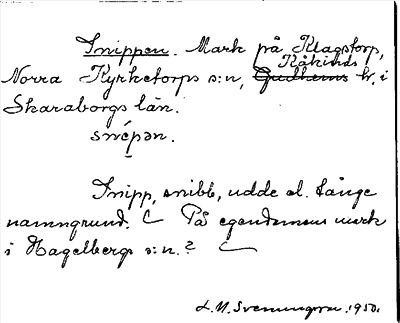 Snippen. Mark på Klagstorp,
Kåkinds
Norra Kyrketorps s:n, Gudhems hd, i
Skaraborgs län.
snépən.
Snipp, snibb, udde el. tånge
namngrund. På egendomens mark
i Hagelbergs s:n.?
L. M. Svenungsson. 1950.